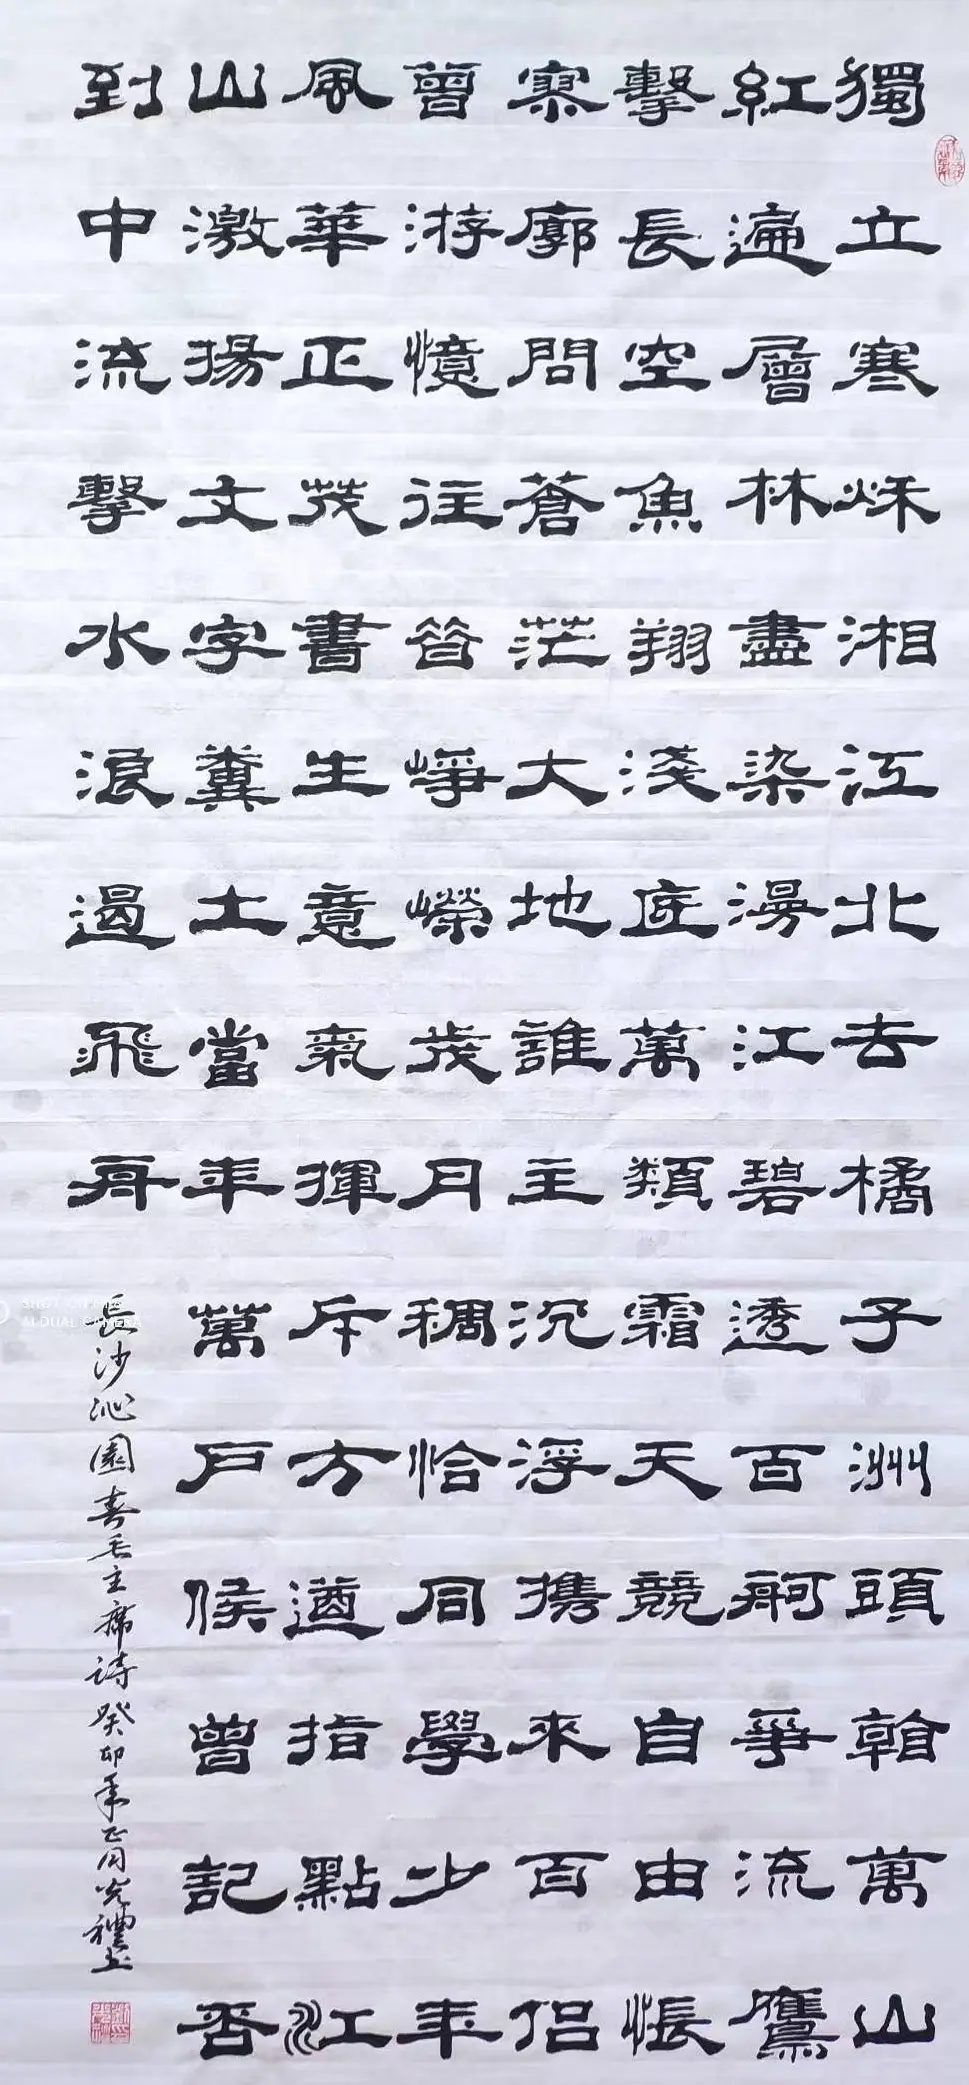 獨立寒秌湘江北去橘子洲頭看萬山
紅遍層林盡染漫江碧透百舸爭流鷹
擊長空魚翔淺底萬類霜天競自由悵
寥廓問蒼茫大地誰主沉浮携來百侶
曾游憶往昔崢嶸歲月稠恰同學少年
風華正茂書生意氣揮斥方遒指點江
山激揚文字糞土當年萬戶侯曾記否
到中流擊水浪遏飛舟
長沙沁園春毛主席詩癸卯年正月光禮書
AI DUAL CAMERA